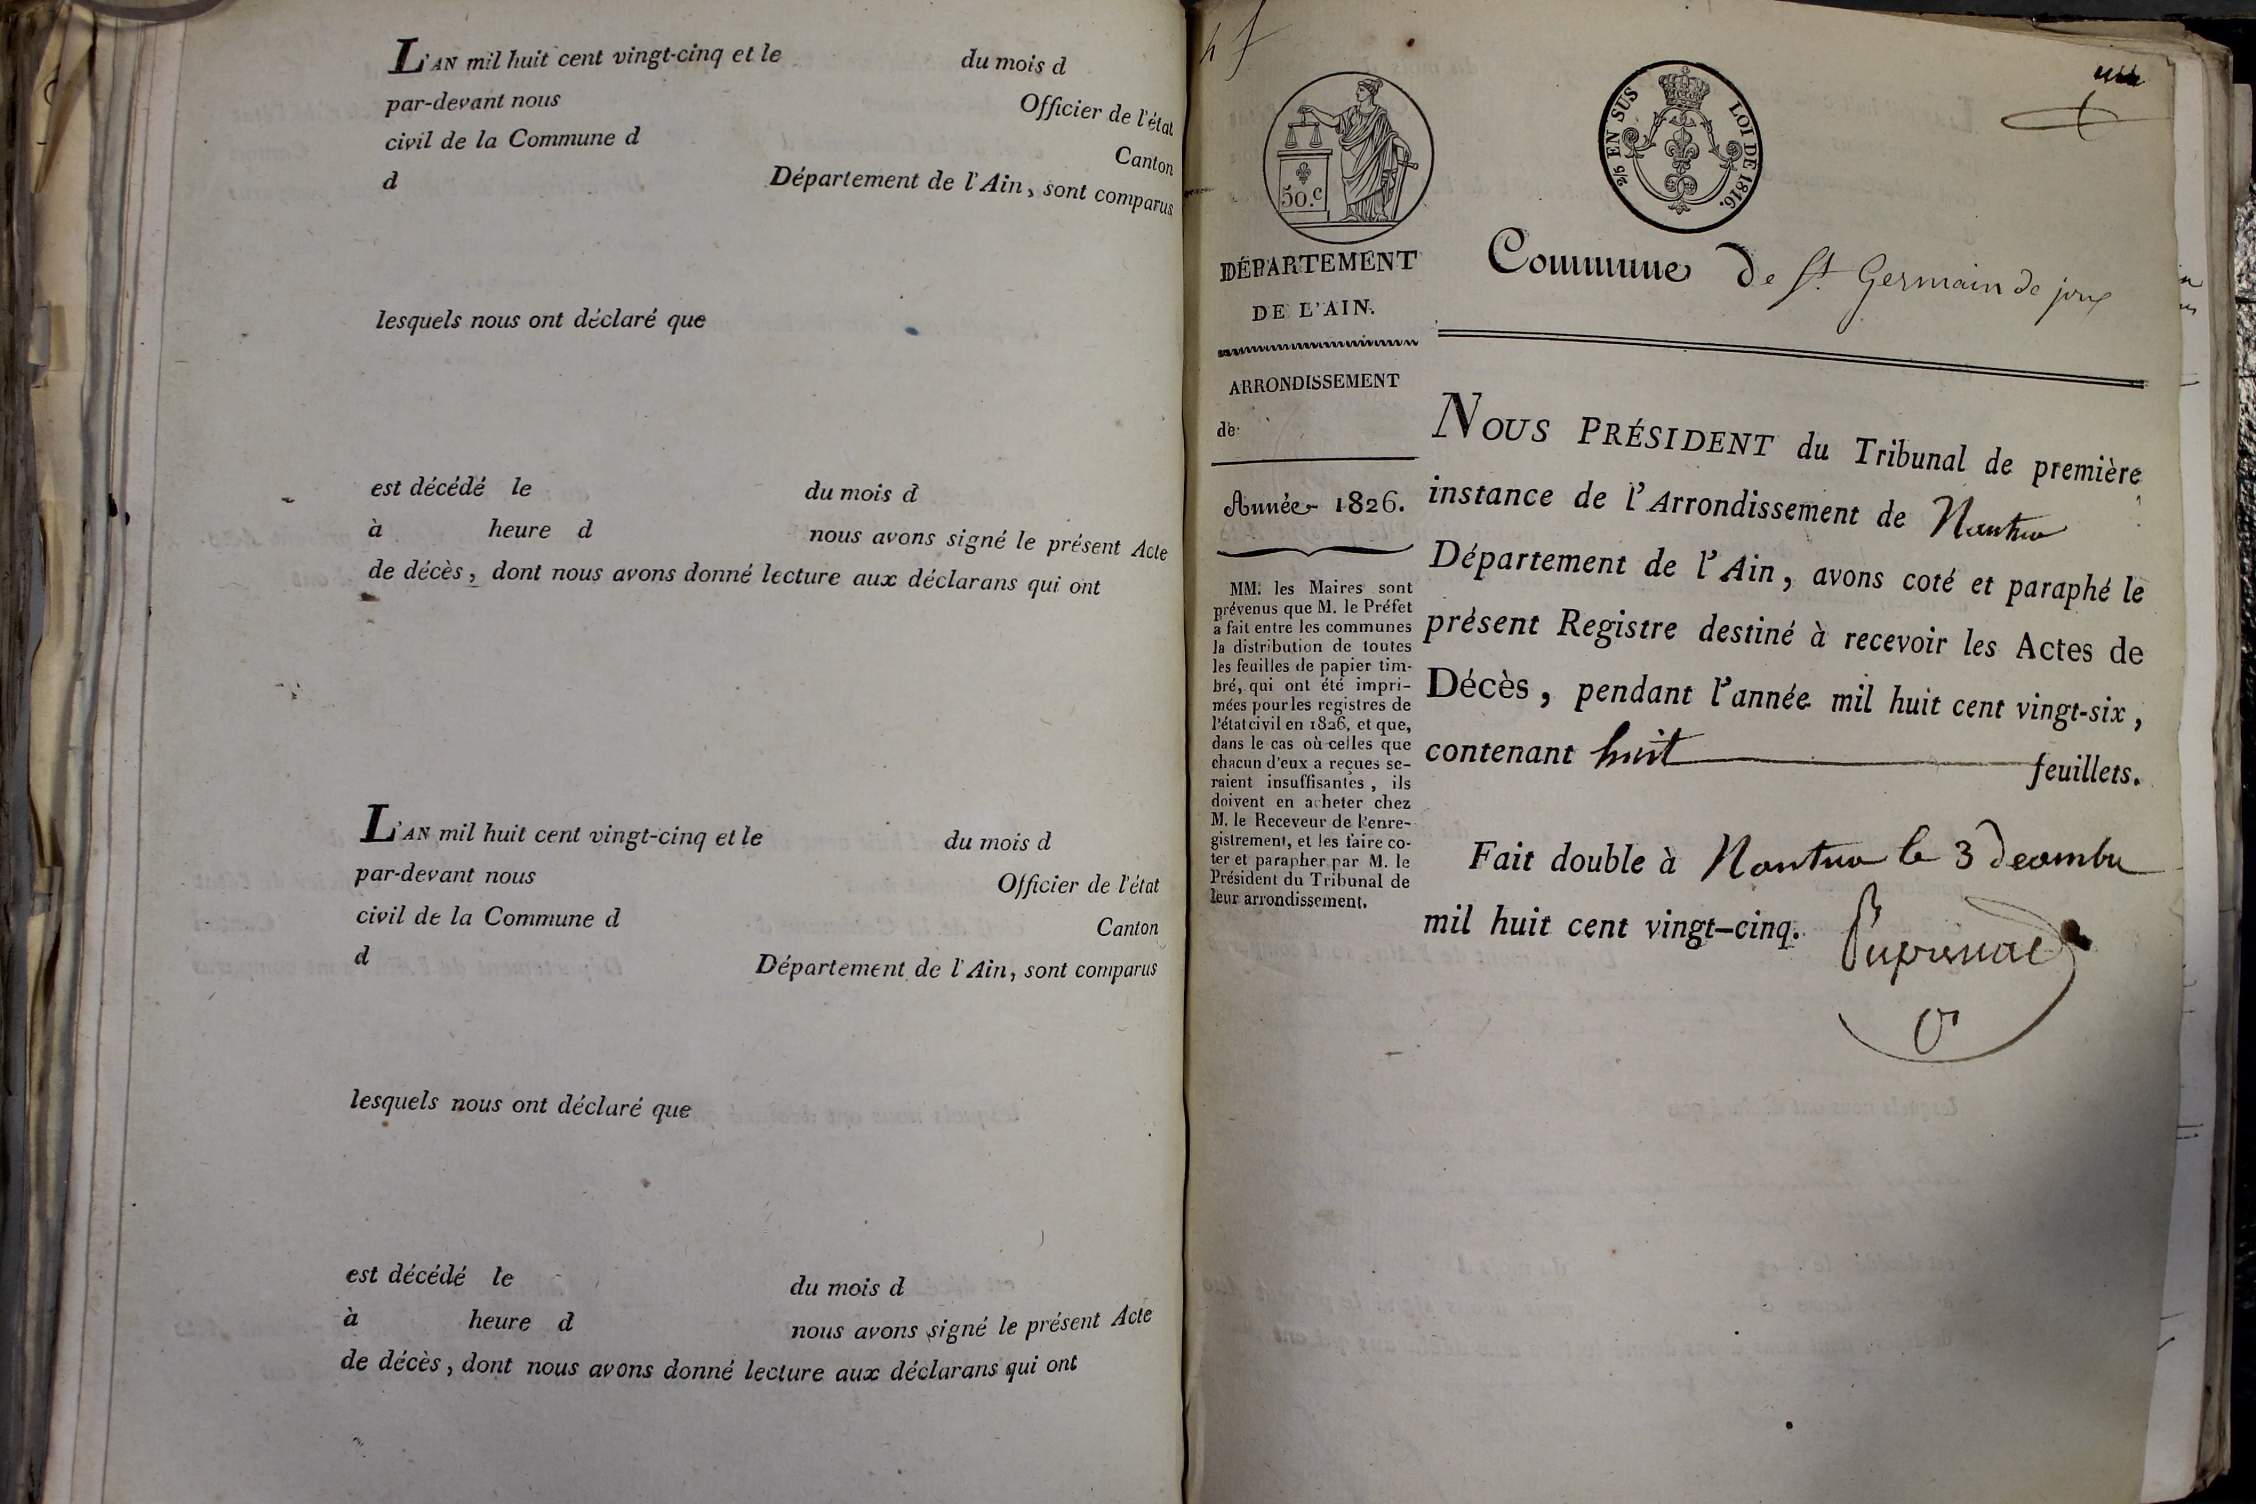 L'AN mil huit cent vingt-cinq et le du mois d
par-devant nous Officier de l'état
civil de la Commune d Canton
d Département de l'Ain, sont comparus
lesquels nous ont déclaré que
est décédé le du mois d
à heure d nous avons signé le présent Acte
de décès, dont nous avons donné lecture aux déclarans qui ont
L'AN mil huit cent vingt-cinq et le du mois d
par-devant nous Officier de l'état
civil de la Commune d Canton
d Département de l'Ain, sont comparus
lesquels nous ont déclaré que
est décédé le du mois d
à heure d nous avons signé le présent Acte
de décès, dont nous avons donné lecture aux déclarans qui ont
50.c
2/5 EN SUS LOI DE 1816.
DÉPARTEMENT
DE L'AIN.
ARRONDISSEMENT
de
Année 1826.
MM. les Maires sont
prévenus que M. le Préfet
a fait entre les communes
la distribution de toutes
les feuilles de papier tim-
bré, qui ont été impri-
mées pour les registres de
l'état civil en 1826, et que,
dans le cas où celles que
chacun d'eux a reçues se-
raient insuffisantes, ils
doivent en acheter chez
M. le Receveur de l'enre-
gistrement, et les faire co-
ter et parapher par M. le
Président du Tribunal de
leur arrondissement.
Commune de St Germain de joux
NOUS PRÉSIDENT du Tribunal de première
instance de l'Arrondissement de Nantua
Département de l'Ain, avons coté et paraphé le
présent Registre destiné à recevoir les Actes de
Décès, pendant l'année mil huit cent vingt-six,
contenant huit feuillets.
Fait double à Nantua le 3 decembre
mil huit cent vingt-cinq.